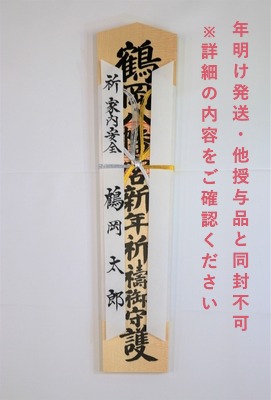 年明け発送・他授与品と同封不可
※詳細の内容をご確認ください
鶴岡八幡宮新年祈禱御守護
祈 家内安全
鶴岡太郎